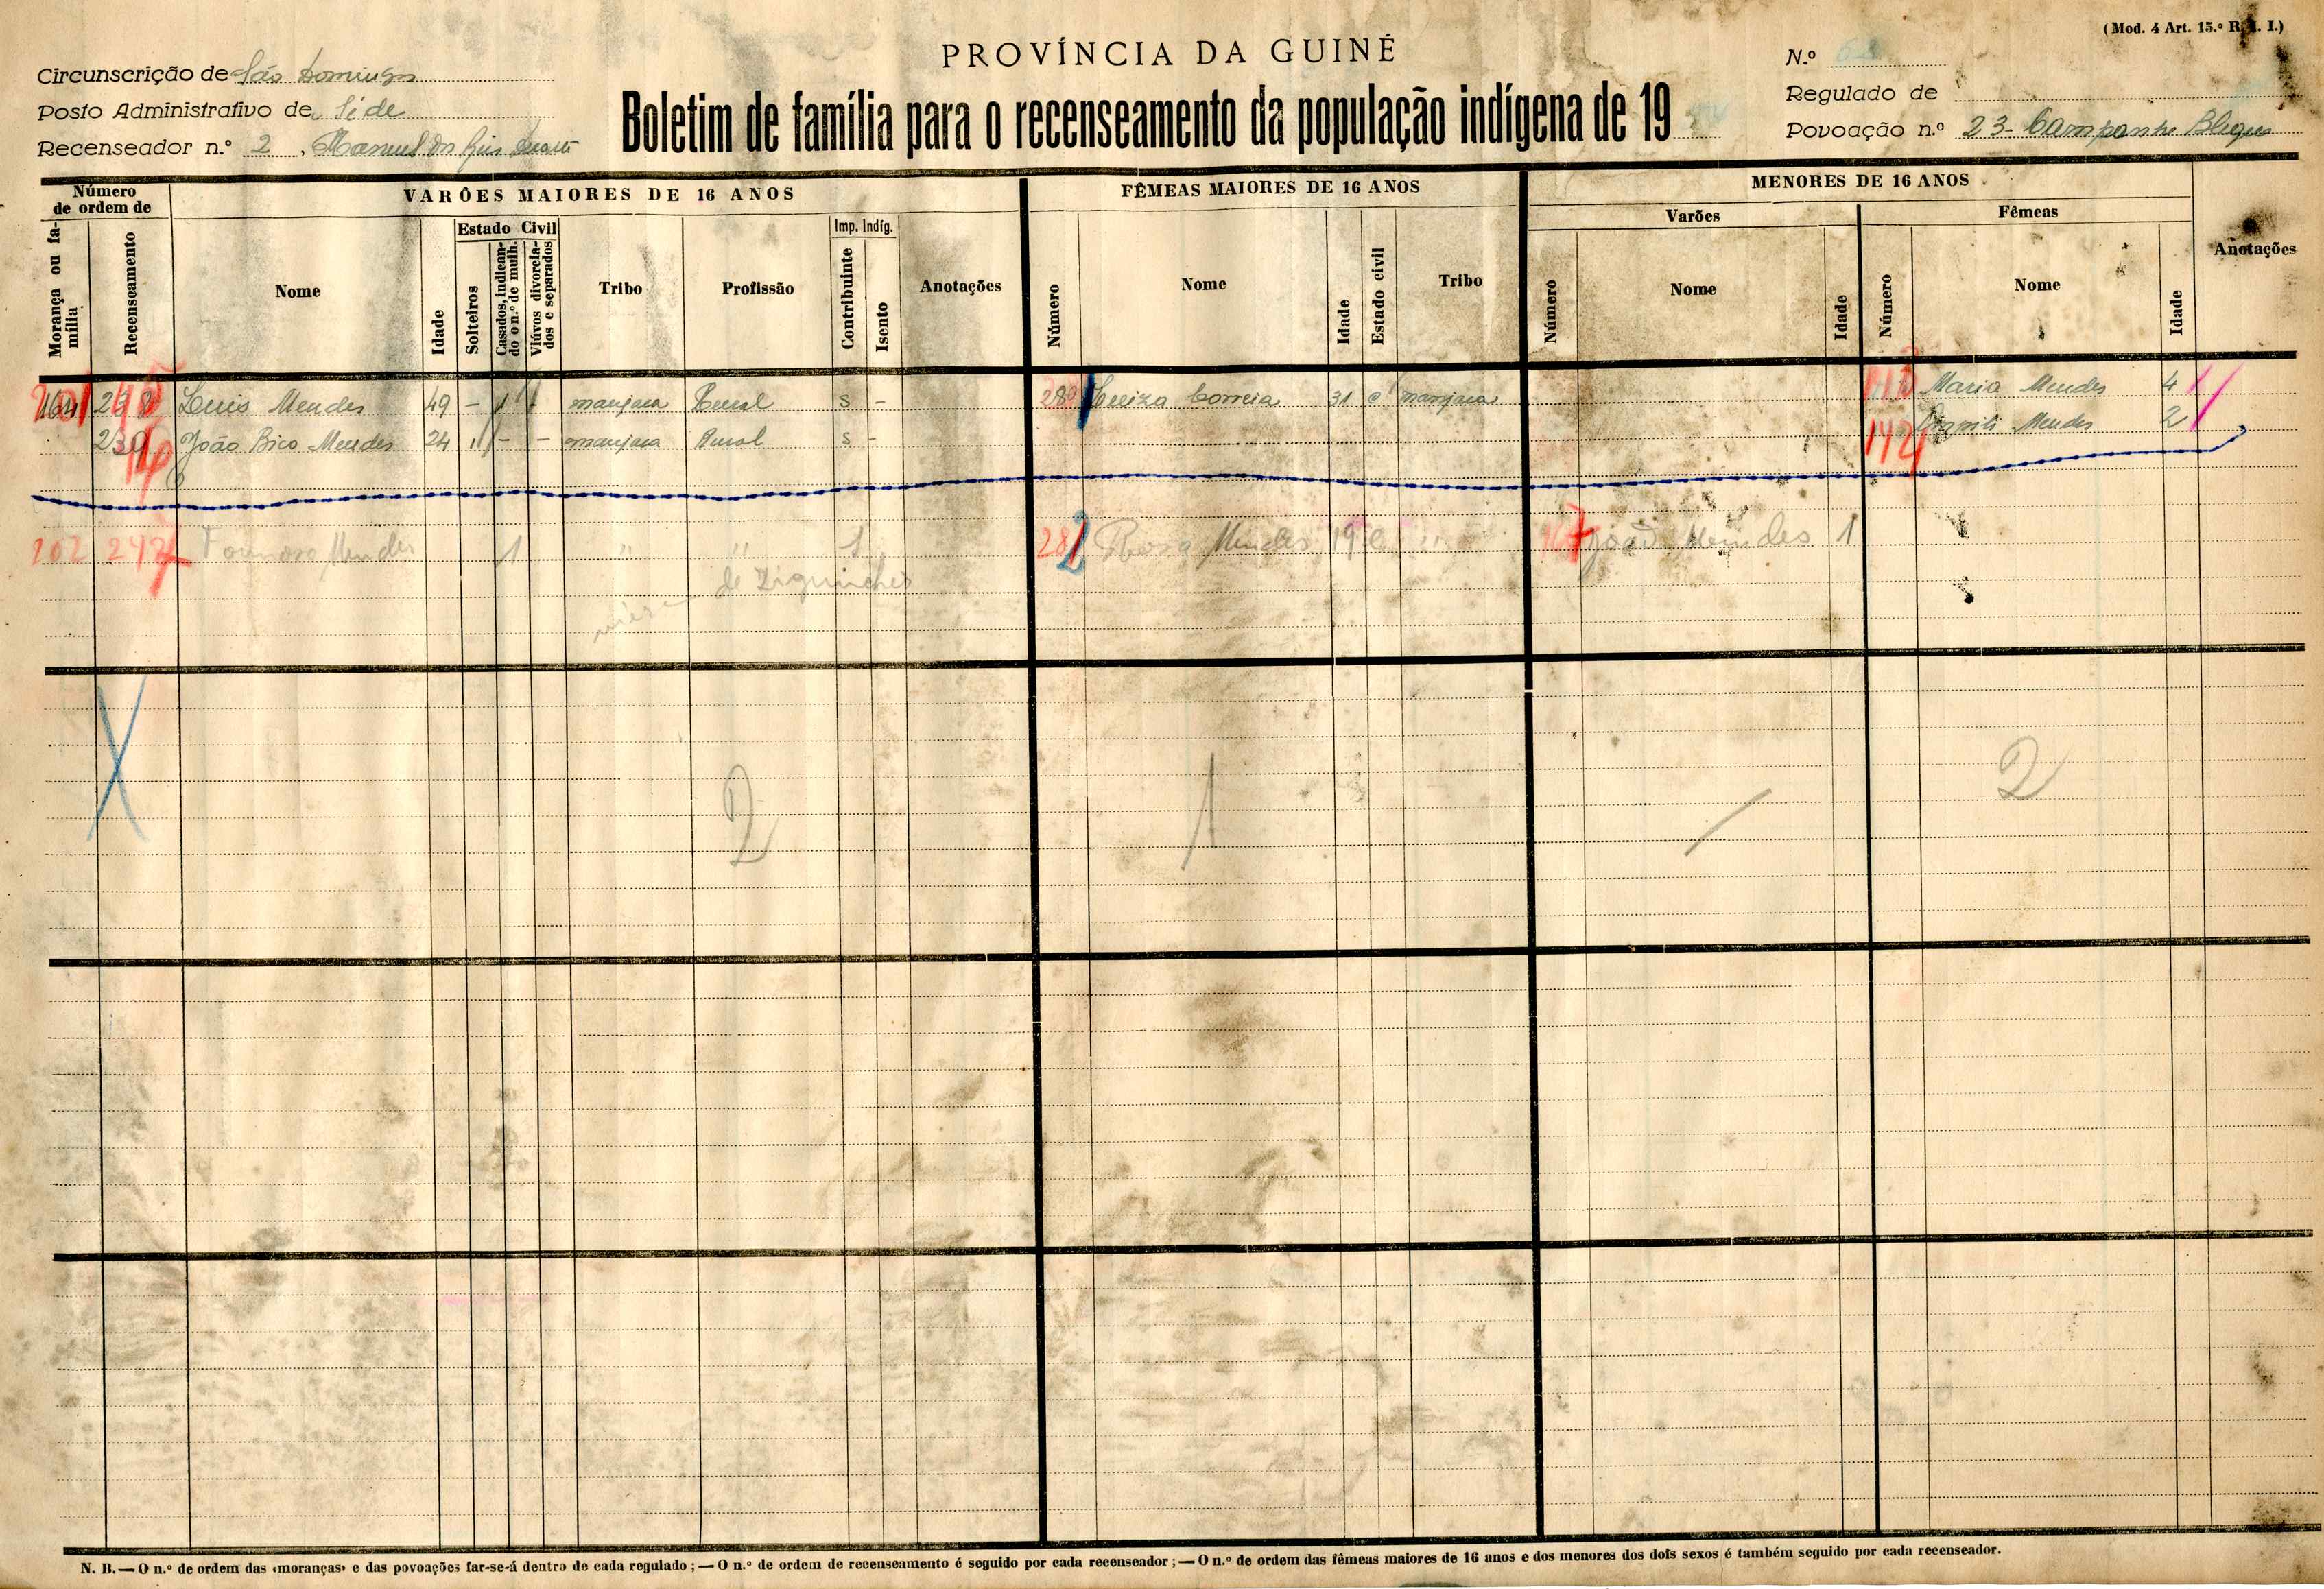 (Mod. 4 Art. 15.º R. . I.)
PROVÍNCIA DA GUINÉ
Boletim de família para o recenseamento da população indígena de 19
Circunscrição de São Domingos
Posto Administrativo de Séde
Recenseador n.º 2, Manuel dos Reis Duarte
N.º
Regulado de
Povoação n.º 23- Campanhe Blequis
Número de ordem de
Morança ou família
Recenseamento
VARÕES MAIORES DE 16 ANOS
Nome
Idade
Estado Civil
Solteiros
Casados, indicando o n.º de mulh.
Viúvos divorciados e separados
Tribo
Profissão
Imp. Indíg.
Contribuinte
Isento
Anotações
FÊMEAS MAIORES DE 16 ANOS
Número
Nome
Idade
Estado civil
Tribo
MENORES DE 16 ANOS
Varões
Número
Nome
Idade
Fêmeas
Número
Nome
Idade
Anotações
Luis Mendes 49 - 1 - manjaca Rural S - 280 Correia 31 C manjaca Maria Mendes 4
239 João Bico Mendes 24 " - - manjaca Rural S - 142 Mendes 2
202 247 Formoso Mendes 1 " " 1 281 2 Rosa Mendes 19 C " 7 João Mendes 1
de Ziguinchor
2 1 / 2
N. B. — O n.º de ordem das «moranças» e das povoações far-se-á dentro de cada regulado ; — O n.º de ordem de recenseamento é seguido por cada recenseador ; — O n.º de ordem das fêmeas maiores de 16 anos e dos menores dos dois sexos é também seguido por cada recenseador.